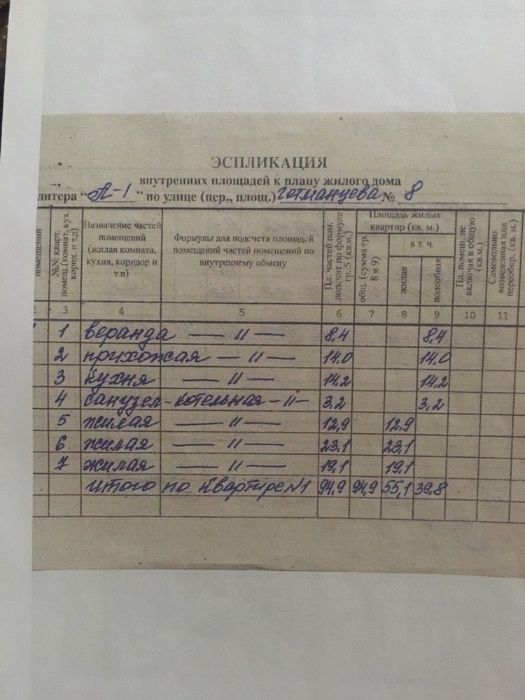 ЭСПЛИКАЦИЯ
внутренних площадей к плану жилого дома
литера "А-1" по улице (пер., площ.) № 8
помещений
№№ кварт. помещ. (комнат, кух. корид. и т.д)
Назначение частей помещений (жилая комната, кухня, коридор и т.п)
Формулы для подсчета площадей помещений частей помещений по внутреннему обмену
Пл. частей пом. подсчит. по формуле гр. 5 (кв.м.)
Площадь жилых квартир (кв. м.)
общ. (сумма гр. 8 и 9)
в т. ч.
жилая
подсобная
Пл. помещ. не включая в общую (кв.м.)
Самовольно возведенная или переобор. (кв. м)
2 3 4 5 6 7 8 9 10 11
1 веранда — " — 8,4 8,4
2 прихожая — " — 14,0 14,0
3 кухня — " — 14,2 14,2
4 санузел-котельная — " — 3,2 3,2
5 жилая — " — 12,9 12,9
6 жилая — " — 23,1 23,1
7 жилая — " — 19,1 19,1
Итого по квартире №1 94,9 94,9 55,1 39,8